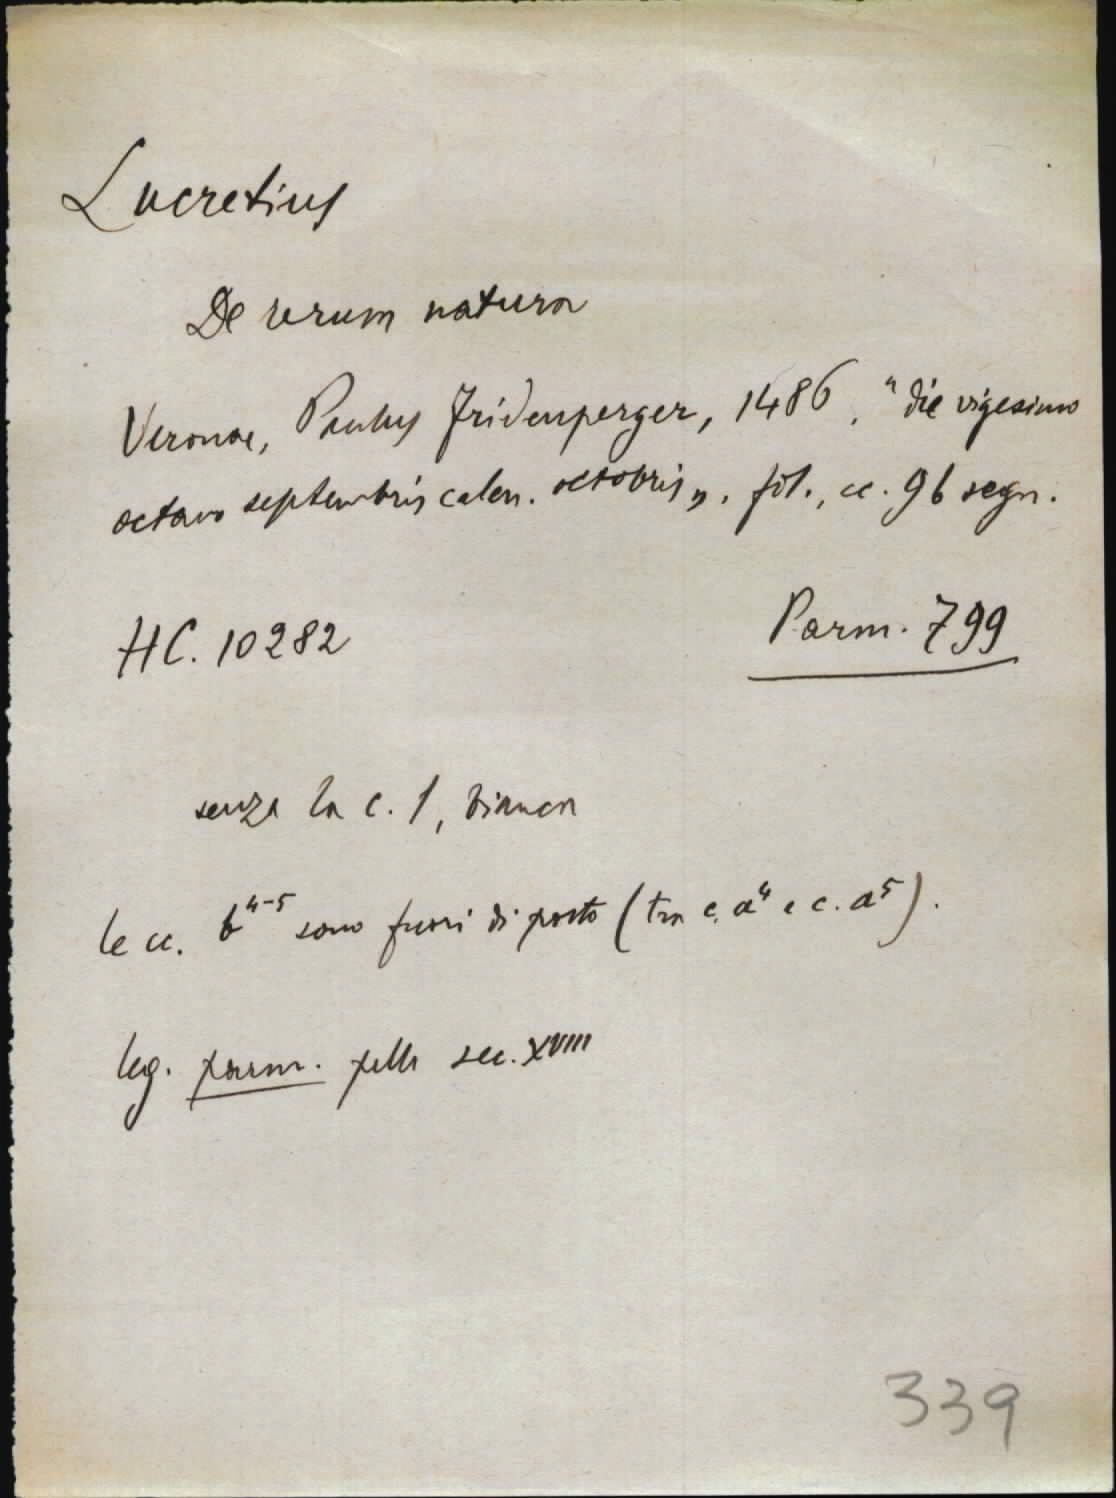 Lucretius
De rerum natura
Veronae, Paulus Fridenperger, 1486. "die vigesimo
octavo septembris calen. octobris„. fol., cc. 96 segn.
HC. 10282
Parm. 799
senza la c. 1, bianca
le cc. b⁴⁻⁵ sono fuori di posto (tra c. a⁴ e c. a⁵).
leg. parm. pelle sec. XVIII
339